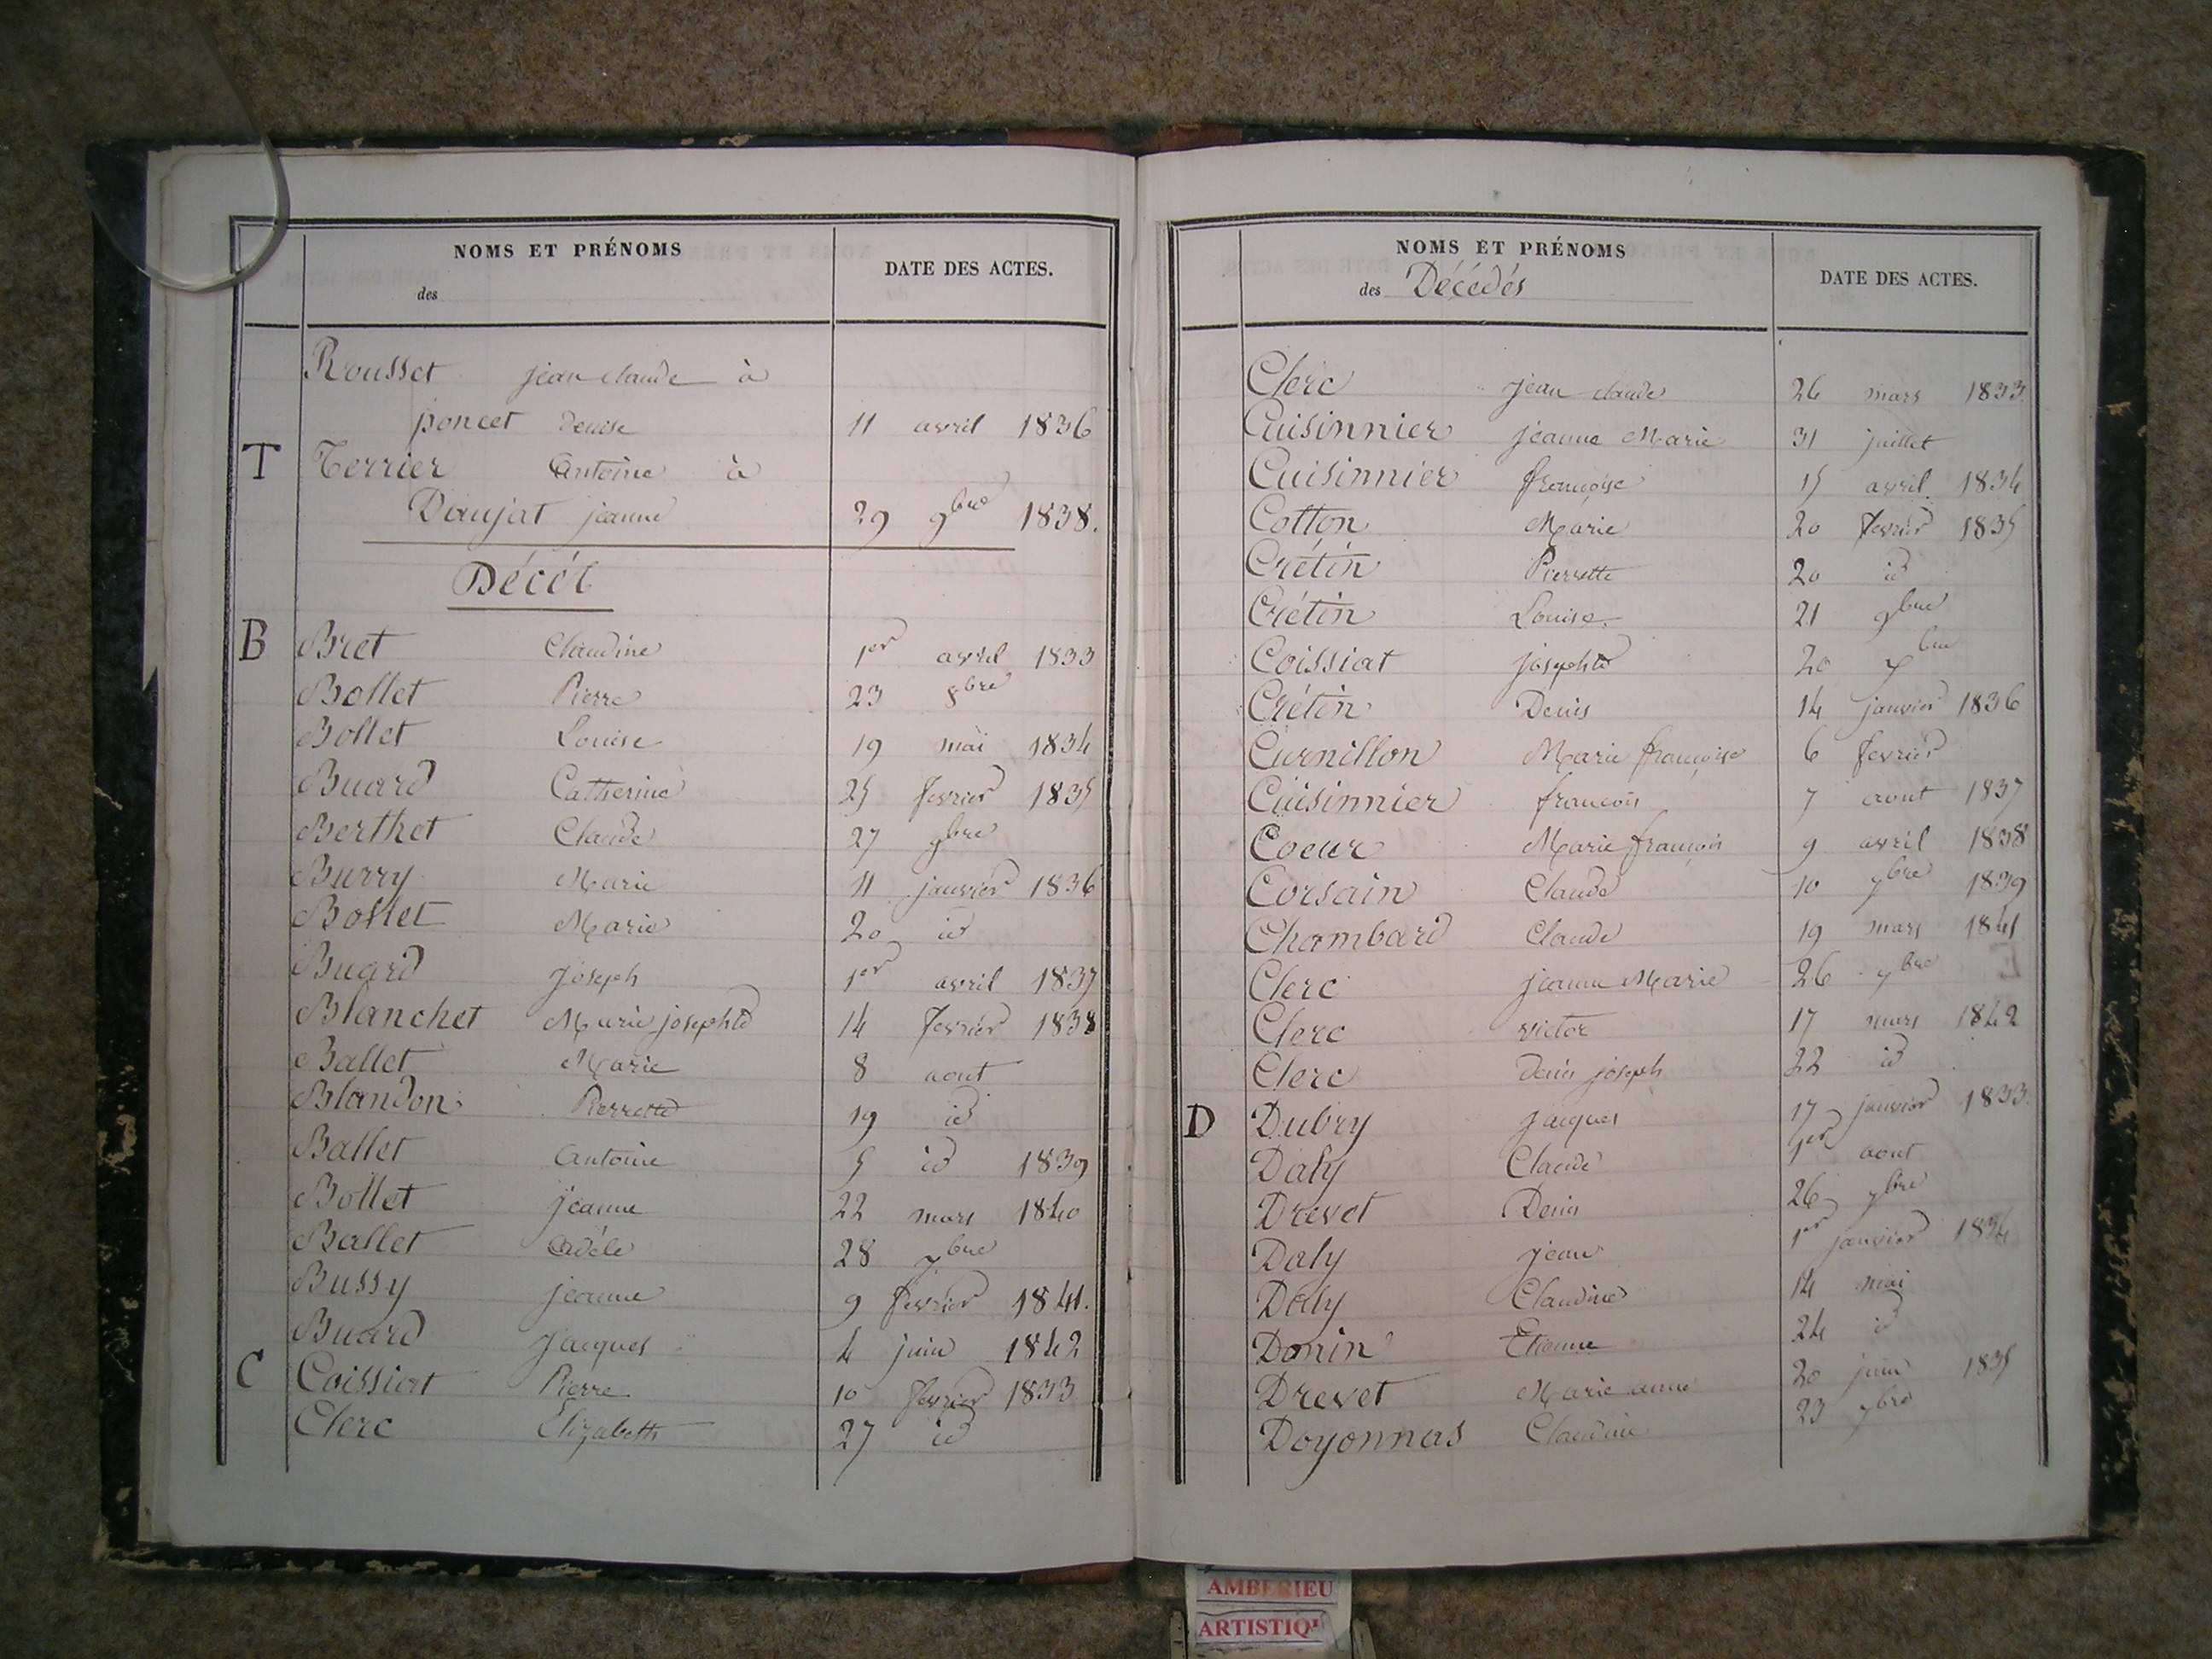 NOMS ET PRÉNOMS
des
DATE DES ACTES.
Rousset jean claude à
poncet Denise 11 avril 1836
T Terrier Antoine à
Daujat jeanne 29 9bre 1838.
Décét
B Bret Claudine 1er avril 1833
Bollet Pierre 23 8bre
Bollet Louise 19 mai 1834
Buard Catherine 25 fevrier 1835
Berthet Claude 27 9bre
Burry Marie 11 janvier 1836
Bollet Marie 20 id
Buard Joseph 1er avril 1837
Blanchet Marie josephte 14 fevrier 1838
Ballet Marie 8 aout
Blandon Pierrette 19 id
Ballet Antoine 5 id 1839
Bollet jeanne 22 mars 1840
Ballet Adèle 28 7bre
Bussy jeanne 9 fevrier 1841.
Buard Jacques 4 juin 1842
C Coissiat Pierre 10 fevrier 1833
Clerc Elizabeth 27 id
NOMS ET PRÉNOMS
des Décédés
DATE DES ACTES.
Clerc jean claude 26 mars 1833
Cuisinnier jeanne Marie 31 juillet
Cuisinnier françoise 15 avril 1834
Cotton Marie 20 fevrier 1835
Crétin Pierrette 20 id
Crétin Louise 21 9bre
Coissiat josephte 20 7bre
Crétin Denis 14 janvier 1836
Curnillon Marie françoise 6 fevrier
Cuisinnier françois 7 aout 1837
Coeur Marie françois 9 avril 1838
Corsain Claude 10 7bre 1839
Chambard Claude 19 mars 1841
Clerc jeanne Marie 26 7bre
Clerc victor 17 mars 1842
Clerc Denis joseph 22 id
D Dubry Jacques 17 janvier 1833
Daly Claude 1er aout
Drevet Denis 26 7bre
Daly jean 1er janvier 1834
Daly Claudine 14 mai
Donin Etienne 24 id
Drevet Marie anne 20 juin 1835
Doyonnas Claudine 23 7bre
AMBERIEU
ARTISTIQ